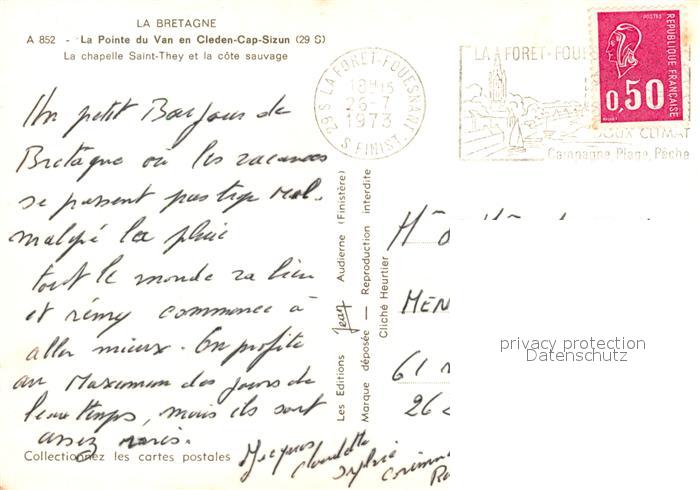 LA BRETAGNE
A 852 - La Pointe du Van en Cleden-Cap-Sizun (29 S)
La chapelle Saint-They et la côte sauvage
29 S LA FORET-FOUESNANT
18H15
26-7
1973
S. FINIST.
LA FORET-FOUE
DOUX CLIMAT
Campagne Plage Pêche
POSTES
REPUBLIQUE FRANÇAISE
0,50
Un petit Bonjour de
Bretagne où les vacances
se passent pas trop mal.
malgré la pluie
tout le monde va bien
et rémy commence à
aller mieux. On profite
au Maximum des jours de
beau temps, mais ils sont
assez rares.
Jacques
Claudette
Sylvie
Corinne
Les Editions Jean Audierne (Finistère)
Marque déposée — Reproduction interdite
Cliché Heurtier
MEN
61
26
privacy protection
Datenschutz
Collectionnez les cartes postales